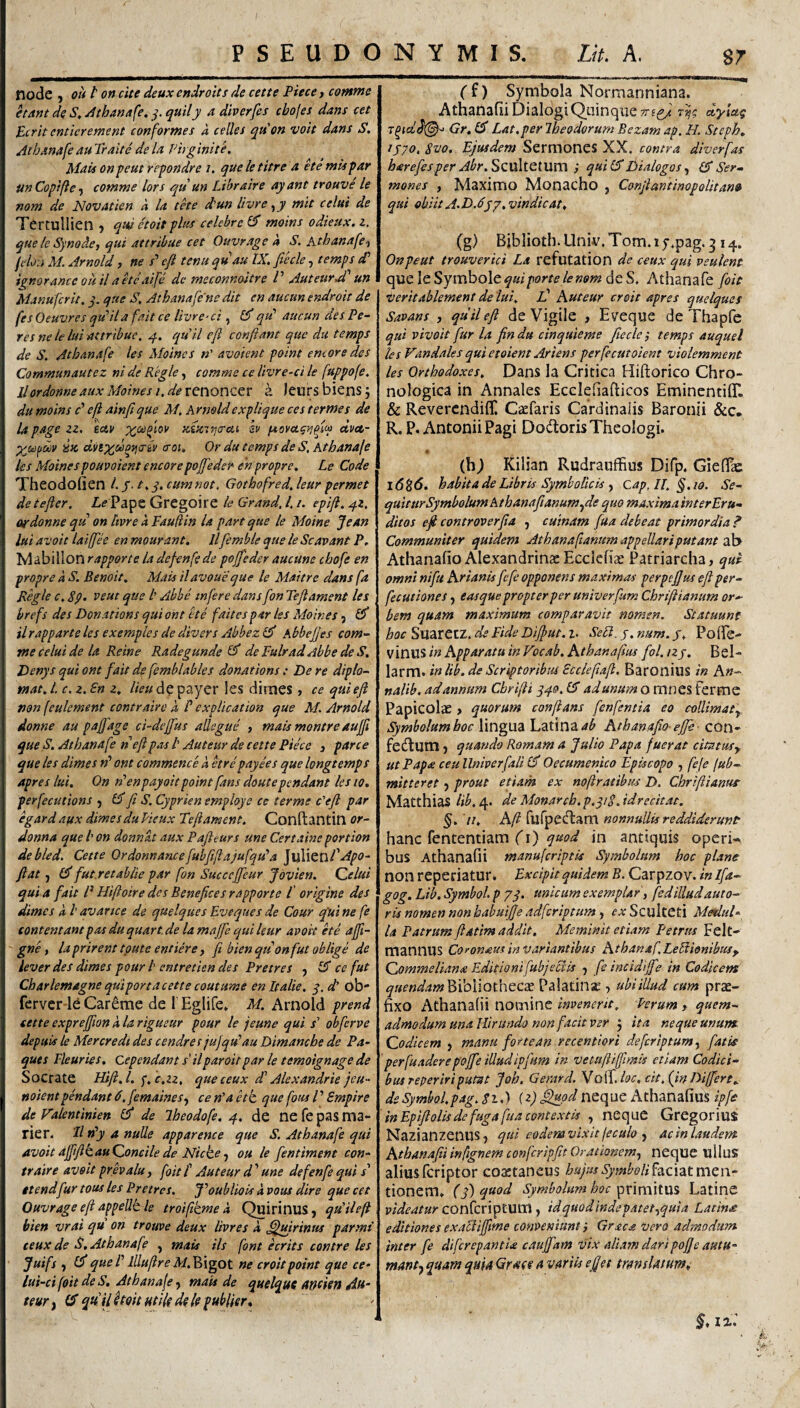 PSEUDONYMIS. Lit. A. 87
node , où l' on cite deux endroits de cette Piece , comme
étant de S. Athanase. 3. qu'il y a diverses choses dans cet
Ecrit entierement conformes à celles qu'on voit dans S.
Athanase au Traité de la Virginité.
Mais on peut repondre 1. que le titre a été mis par
un Copiste, comme lors qu' un Libraire ayant trouvé le
nom de Novatien à la tête d'un livre , y mit celui de
Tertullien , qui étoit plus celebre & moins odieux. 2.
que le Synode, qui attribue cet Ouvrage à S. Athanase,
selon M. Arnold , ne s' est tenu qu' au IX. siécle , temps d'
ignorance où il a été aisé de meconnoitre l' Auteur d' un
Manuscrit. 3. que S. Athanase ne dit en aucun endroit de
ses Oeuvres qu'il a fait ce livre-ci , & qu' aucun des Pe-
res ne le lui attribue. 4. qu'il est constant que du temps
de S. Athanase les Moines n' avoient point encore des
Communautez ni de Regle , comme ce livre-ci le suppose.
Il ordonne aux Moines 1. de renoncer à leurs biens ;
du moins c' est ainsi que M. Arnold explique ces termes de
la page 22. ἐὰν χωρίον κέκτησαι ἐν μοναςηρίῳ ἀνα-
χωρῶν ἐκ ἀνεχώρησέν σοι. Or du temps de S. Athanase
les Moines pouvoient encore posseder en propre. Le Code
Theodosien l. 5. t. 3. cum not. Gothofred. leur permet
de tester. Le Pape Gregoire le Grand, l. 1. epist. 42.
ordonne qu' on livre à Faustin la part que le Moine Jean
lui avoit laissée en mourant. Il semble que le Scavant P.
Mabillon rapporte la defense de posseder aucune chose en
propre à S. Benoit. Mais il avouë que le Maitre dans sa
Regle c. 89. veut que l' Abbé insere dans son Testament les
brefs des Donations qui ont été faites par les Moines , &
il rapparte les exemples de divers Abbez & Abbesses com-
me celui de la Reine Radegunde & de Fulrad Abbe de S.
Denys qui ont fait de semblables donations : De re diplo-
mat. l. c. 2. En 2. lieu de payer les dimes , ce qui est
non seulement contraire à l' explication que M. Arnold
donne au passage ci-dessus allegué , mais montre aussi
que S. Athanase n' est pas l' Auteur de cette Piéce , parce
que les dimes n' ont commencé à être payées que longtemps
apres lui. On n' en payoit point sans doute pendant les 10.
persecutions , & si S. Cyprien employe ce terme c'est par
égard aux dimes du Vieux Testament. Constantin or-
donna que l' on donnât aux Pasteurs une Certaine portion
de bled. Cette Ordonnance subsista jusqu'a Julien l' Apo-
stat , & fut retablie par son Successeur Jovien. Celui
qui a fait l' Histoire des Benefices rapporte l' origine des
dimes à l' avarice de quelques Eveques de Cour qui ne se
contentant pas du quart de la masse qui leur avoit été assi-
gné , la prirent toute entiére , si bien qu'on fut obligé de
lever des dimes pour l' entretien des Pretres , & ce fut
Charlemagne qui porta cette coutume en Italie. 3. d' ob-
server le Carême de l' Eglise. M. Arnold prend
cette expression à la rigueur pour le jeune qui s' observe
depuis le Mercredi des cendres jusqu'au Dimanche de Pa-
ques Fleuries. Cependant s'il paroit par le temoignage de
Socrate Hist. l. 5. c. 22. que ceux d' Alexandrie jeu-
noient péndant 6. semaines, ce n'a été que sous l' Empire
de Valentinien & de Theodose. 4. de ne se pas ma-
rier. Il n'y a nulle apparence que S. Athanase qui
avoit assisté au Concile de Nicée , ou le sentiment con-
traire avoit prévalu , soit l' Auteur d' une defense qui s'
etend sur tous les Pretres. J'oubliois à vous dire que cet
Ouvrage est appellé le troisiéme à Quirinus , qu'il est
bien vrai qu' on trouve deux livres à Quirinus parmi
ceux de S. Athanase , mais ils sont écrits contre les
Juifs , & que l' Illustre M. Bigot ne croit point que ce-
lui-ci soit de S. Athanase , mais de quelque ancien Au-
teur , & qu'il étoit utile de le publier.
(f) Symbola Normanniana.
Athanasii Dialogi Quinque περὶ τῆς ἁγίας
τριάδ@- Gr. & Lat. per Theodorum Bezam ap. H. Steph.
1570. 8vo. Ejusdem Sermones XX. contra diversas
hæreses per Abr. Scultetum ; qui & Dialogos , & Ser-
mones , Maximo Monacho , Constantinopolitano
qui obiit A. D. 657. vindicat.
(g) Biblioth. Univ. Tom. 15. pag. 314.
On peut trouver ici La refutation de ceux qui veulent
que le Symbole qui porte le nom de S. Athanase soit
veritablement de lui. L' Auteur croit apres quelques
Savans , qu'il est de Vigile , Eveque de Thapse
qui vivoit sur la fin du cinquieme siecle ; temps auquel
les Vandales qui etoient Ariens persecutoient violemment
les Orthodoxes. Dans la Critica Historico Chro-
nologica in Annales Ecclesiasticos Eminentiss.
& Reverendiss. Cæsaris Cardinalis Baronii &c.
R. P. Antonii Pagi Doctoris Theologi.
(h) Kilian Rudrauffius Disp. Giessæ
1686. habita de Libris Symbolicis , Cap. II. §. 10. Se-
quitur Symbolum Athanasianum, de quo maxima inter Eru-
ditos est controversia , cuinam sua debeat primordia ?
Communiter quidem Athanasianum appellari putant ab
Athanasio Alexandrinæ Ecclesiæ Patriarcha , qui
omni nisu Arianis sese opponens maximas perpessus est per-
secutiones , easque propter per universum Christianum or-
bem quam maximum comparavit nomen. Statuunt
hoc Suaretz. de Fide Disput. 2. Sect. 5. num. 5. Posse-
vinus in Apparatu in Vocab. Athanasius fol. 125. Bel-
larm. in lib. de Scriptoribus Ecclesiast. Baronius in An-
nalib. ad annum Christi 340. & ad unum omnes ferme
Papicolæ , quorum constans sensentia eo collimat,
Symbolum hoc lingua Latina ab Athanasio esse con-
fectum , quando Romam a Julio Papa fuerat citatus,
ut Papæ ceu Universali & Oecumenico Episcopo , sese sub-
mitteret , prout etiam ex nostratibus D. Christianus
Matthias lib. 4. de Monarch. p. 318. id recitat.
§. 11. Ast suspectam nonnullis reddiderunt
hanc sententiam (1) quod in antiquis operi-
bus Athanasii manuscriptis Symbolum hoc plane
non reperiatur. Excipit quidem B. Carpzov. in Isa-
gog. Lib. Symbol. p 73. unicum exemplar , sed illud auto-
ris nomen non habuisse adscriptum , ex Sculteti Medul-
la Patrum statim addit. Meminit etiam Petrus Felt-
mannus Coronæus in variantibus Athanas. Lectionibus,
Commelianæ Editioni subjectis , se incidisse in Codicem
quendam Bibliothecæ Palatinæ , ubi illud cum præ-
fixo Athanasii nomine invenerit. Verum , quem-
admodum una Hirundo non facit ver ; ita neque unum
Codicem , manu fortean recentiori descriptum , satis
persuadere posse illud ipsum in vetustissimis etiam Codici-
bus reperiri putat Joh. Gerard. Voss. loc. cit. (in Differt.
de Symbol. pag. 81.) (2) Quod neque Athanasius ipse
in Epistolis de fuga sua contextis , neque Gregorius
Nazianzenus , qui eodem vixit seculo , ac in laudem
Athanasii insignem conscripsit Orationem, neque ullus
alius scriptor coætaneus hujus Symboli faciat men-
tionem. (3) quod Symbolum hoc primitus Latine
videatur conscriptum , id quod inde patet, quia Latinæ
editiones exactissime conveniunt ; Græcæ vero admodum
inter se discrepantiæ caussam vix aliam dari posse autu-
mant, quam quia Græce a variis esset translatum.
§. 12.